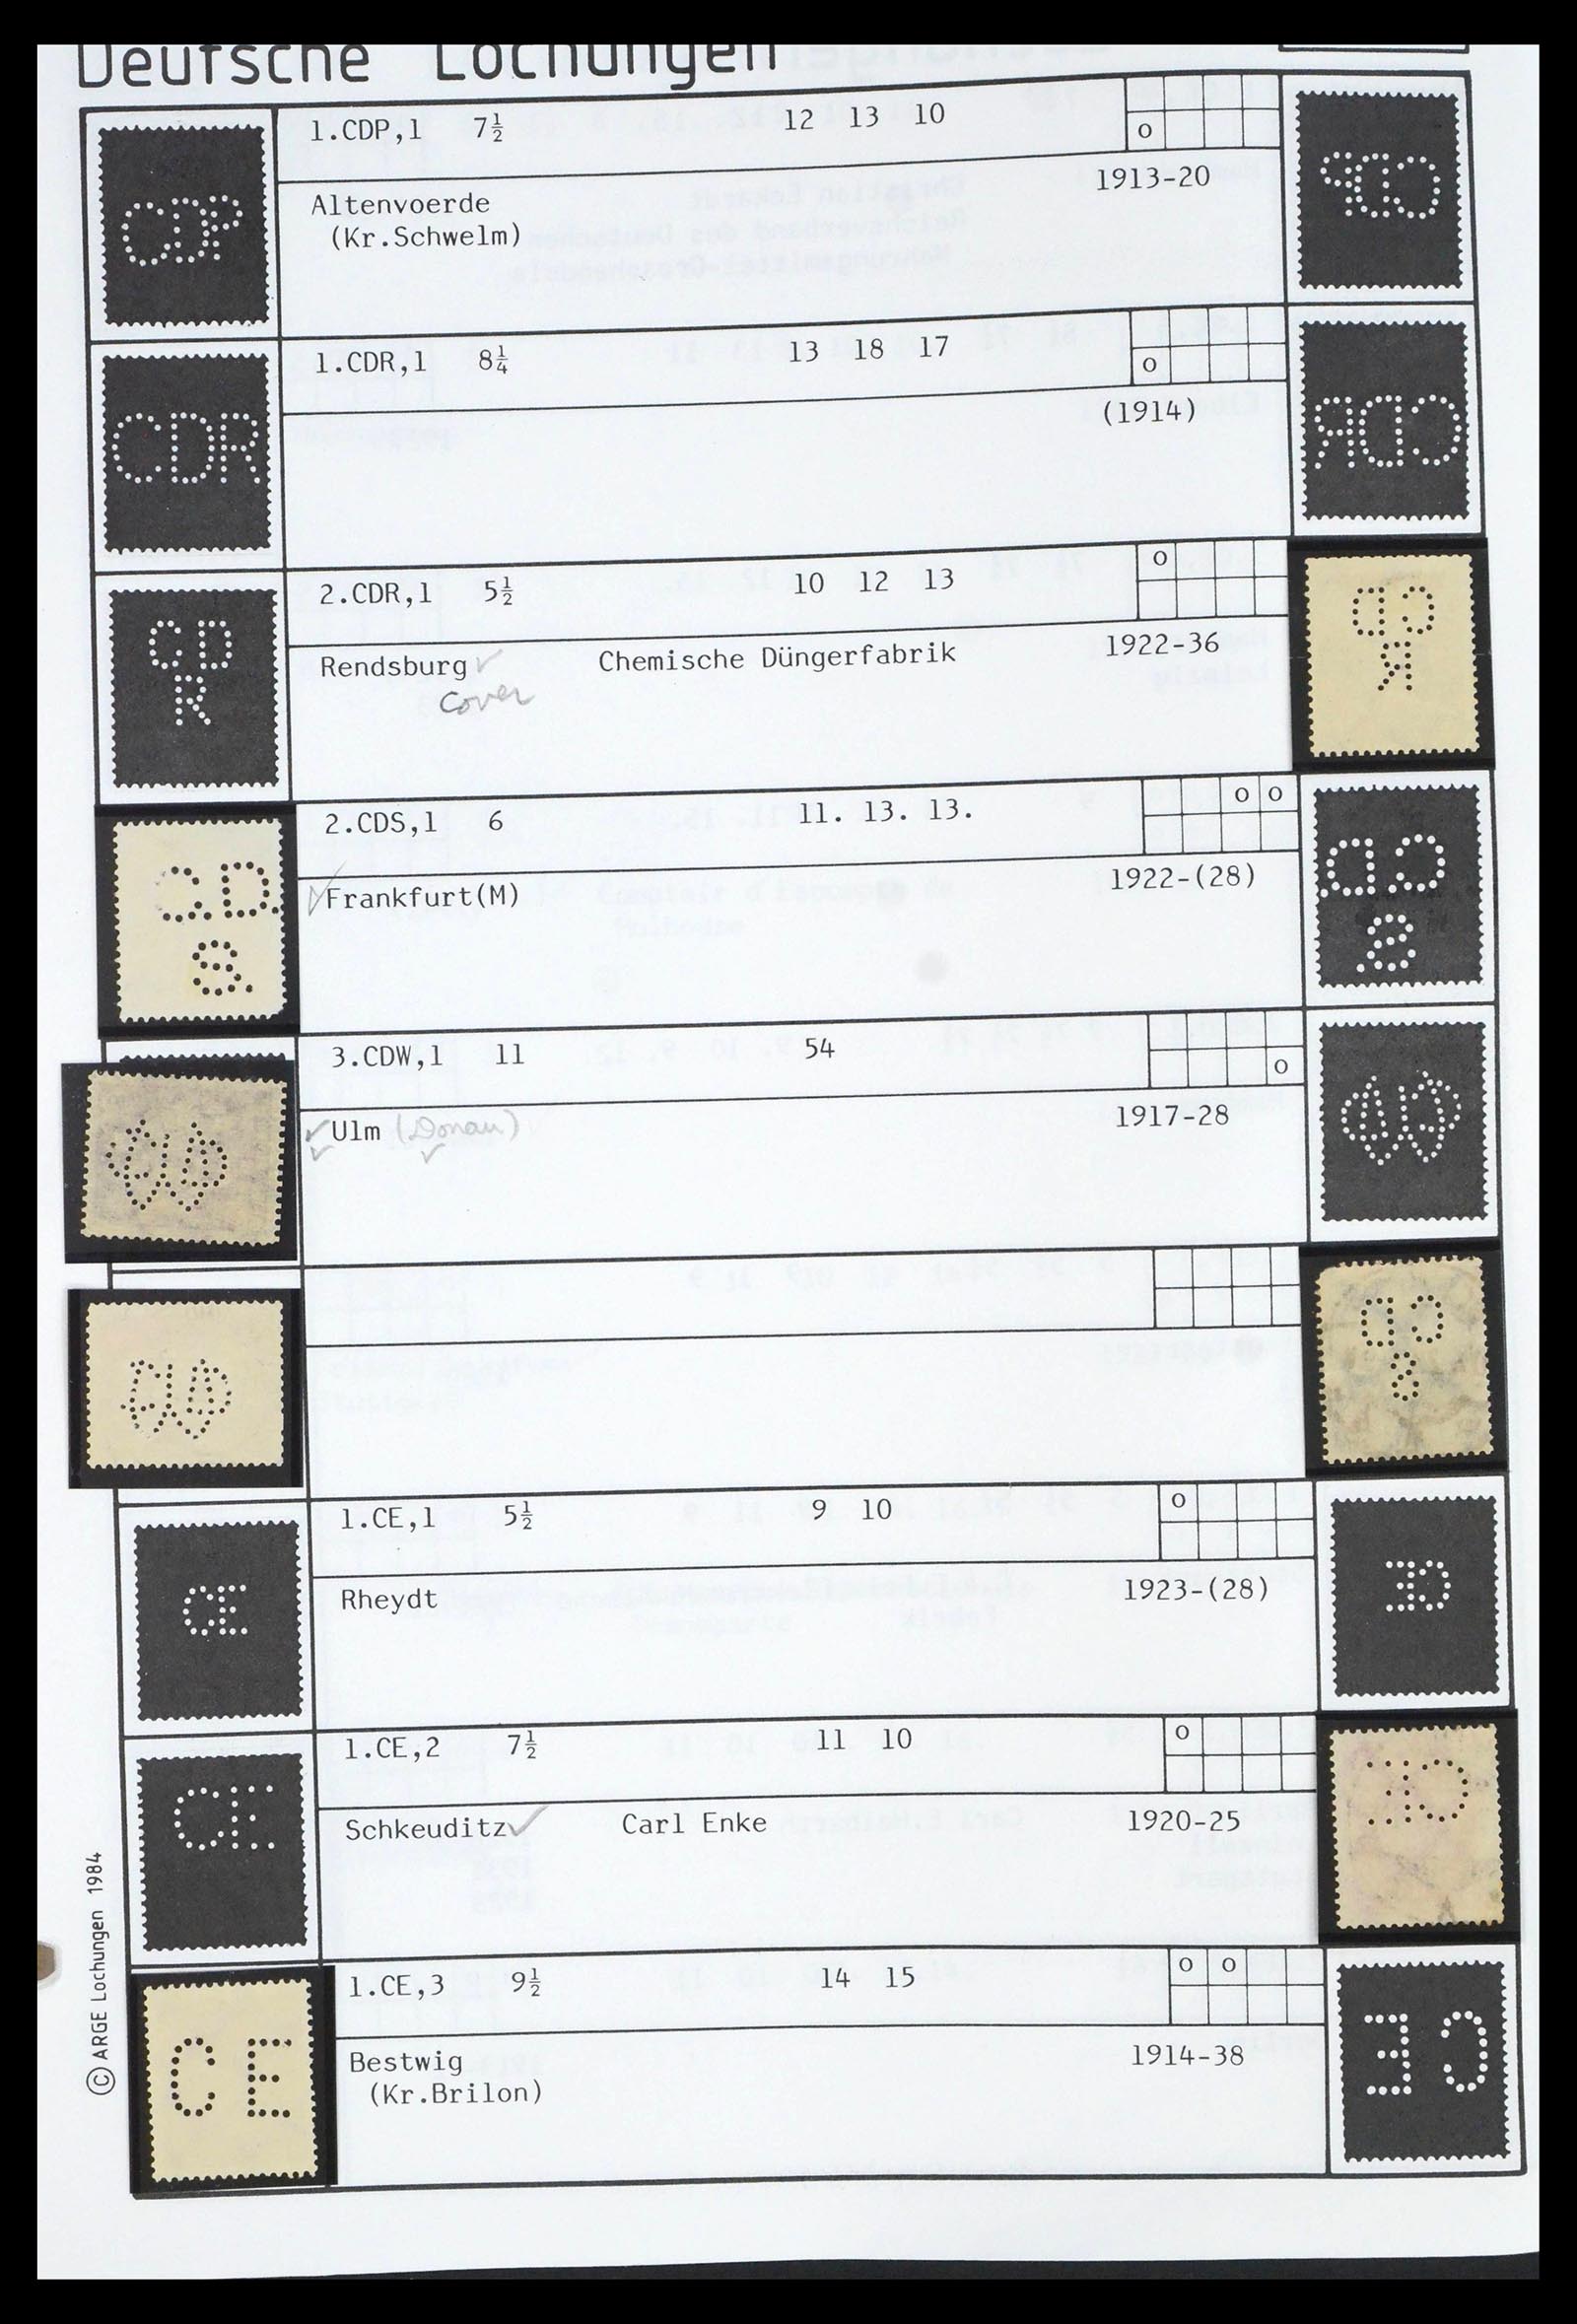 Deutsche Lochungen
CDP
1.CDP,1 7½ 12 13 10
o
1913-20
Altenvoerde
(Kr.Schwelm)
CDR
1.CDR,1 8¼ 13 18 17
o
(1914)
CD
R
2.CDR,1 5½ 10 12 13
o
Rendsburg ✓ Chemische Düngerfabrik 1922-36
cover
C.D.
S.
2.CDS,1 6 11. 13. 13.
o o
✓ Frankfurt(M) 1922-(28)
3.CDW,1 11 54
o
✓ Ulm (Donau) 1917-28
1.CE,1 5½ 9 10
o
CE
Rheydt 1923-(28)
1.CE,2 7½ 11 10
o
CE
Schkeuditz ✓ Carl Enke 1920-25
1.CE,3 9½ 14 15
o o
CE
Bestwig 1914-38
(Kr.Brilon)
© ARGE Lochungen 1984